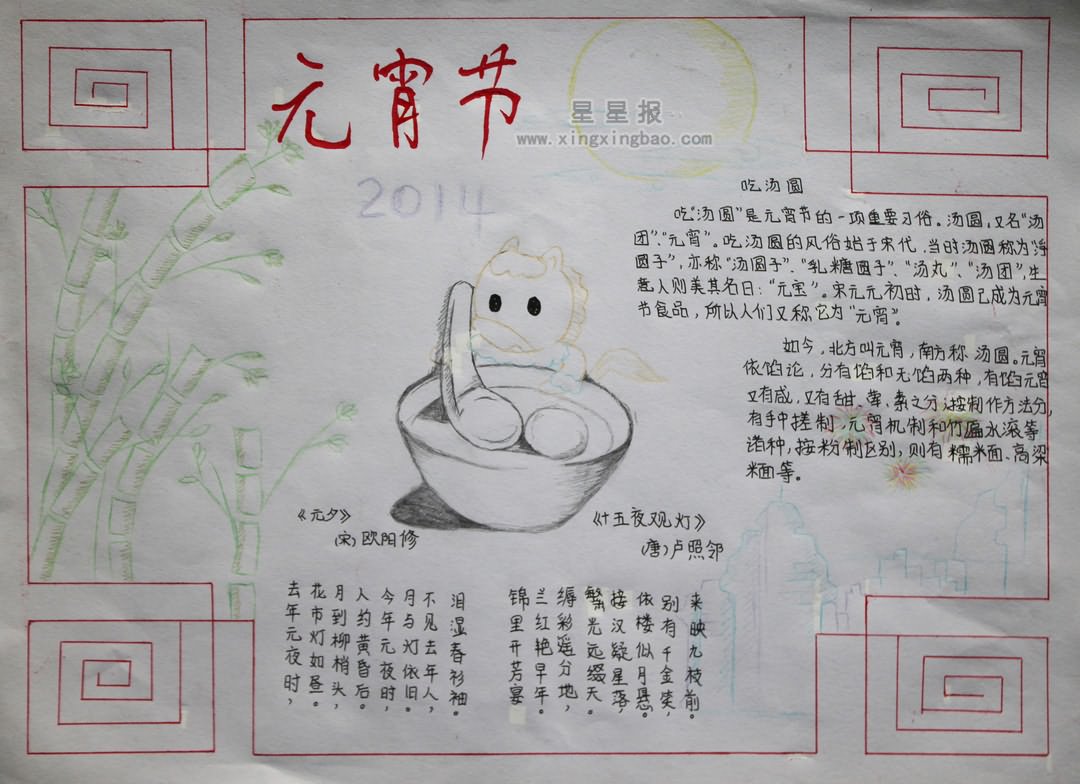 元宵节
星星报
www.xingxingbao.com
2014
吃汤圆
吃“汤圆”是元宵节的一项重要习俗。汤圆，又名“汤
团”、“元宵”。吃汤圆的风俗始于宋代，当时汤圆称为“浮
圆子”，亦称“汤圆子”、“乳糖圆子”、“汤丸”、“汤团”，生
意人则美其名曰：“元宝”。宋元元初时，汤圆已成为元宵
节食品，所以人们又称它为“元宵”。
如今，北方叫元宵，南方称汤圆。元宵
依馅论，分有馅和无馅两种，有馅元宵
又有咸，又有甜、荤、素之分；按制作方法分，
有手中搓制，元宵机制和竹匾水滚等
诸种，按粉制区别，则有糯米面、高梁
米面等。
《元夕》
(宋)欧阳修
去年元夜时，
花市灯如昼。
月到柳梢头，
人约黄昏后。
今年元夜时，
月与灯依旧。
不见去年人，
泪湿春衫袖。
《十五夜观灯》
(唐)卢照邻
锦里开芳宴
兰红艳早年。
缛彩遥分地，
繁光远缀天。
接汉疑星落，
依楼似月悬。
别有千金笑，
来映九枝前。